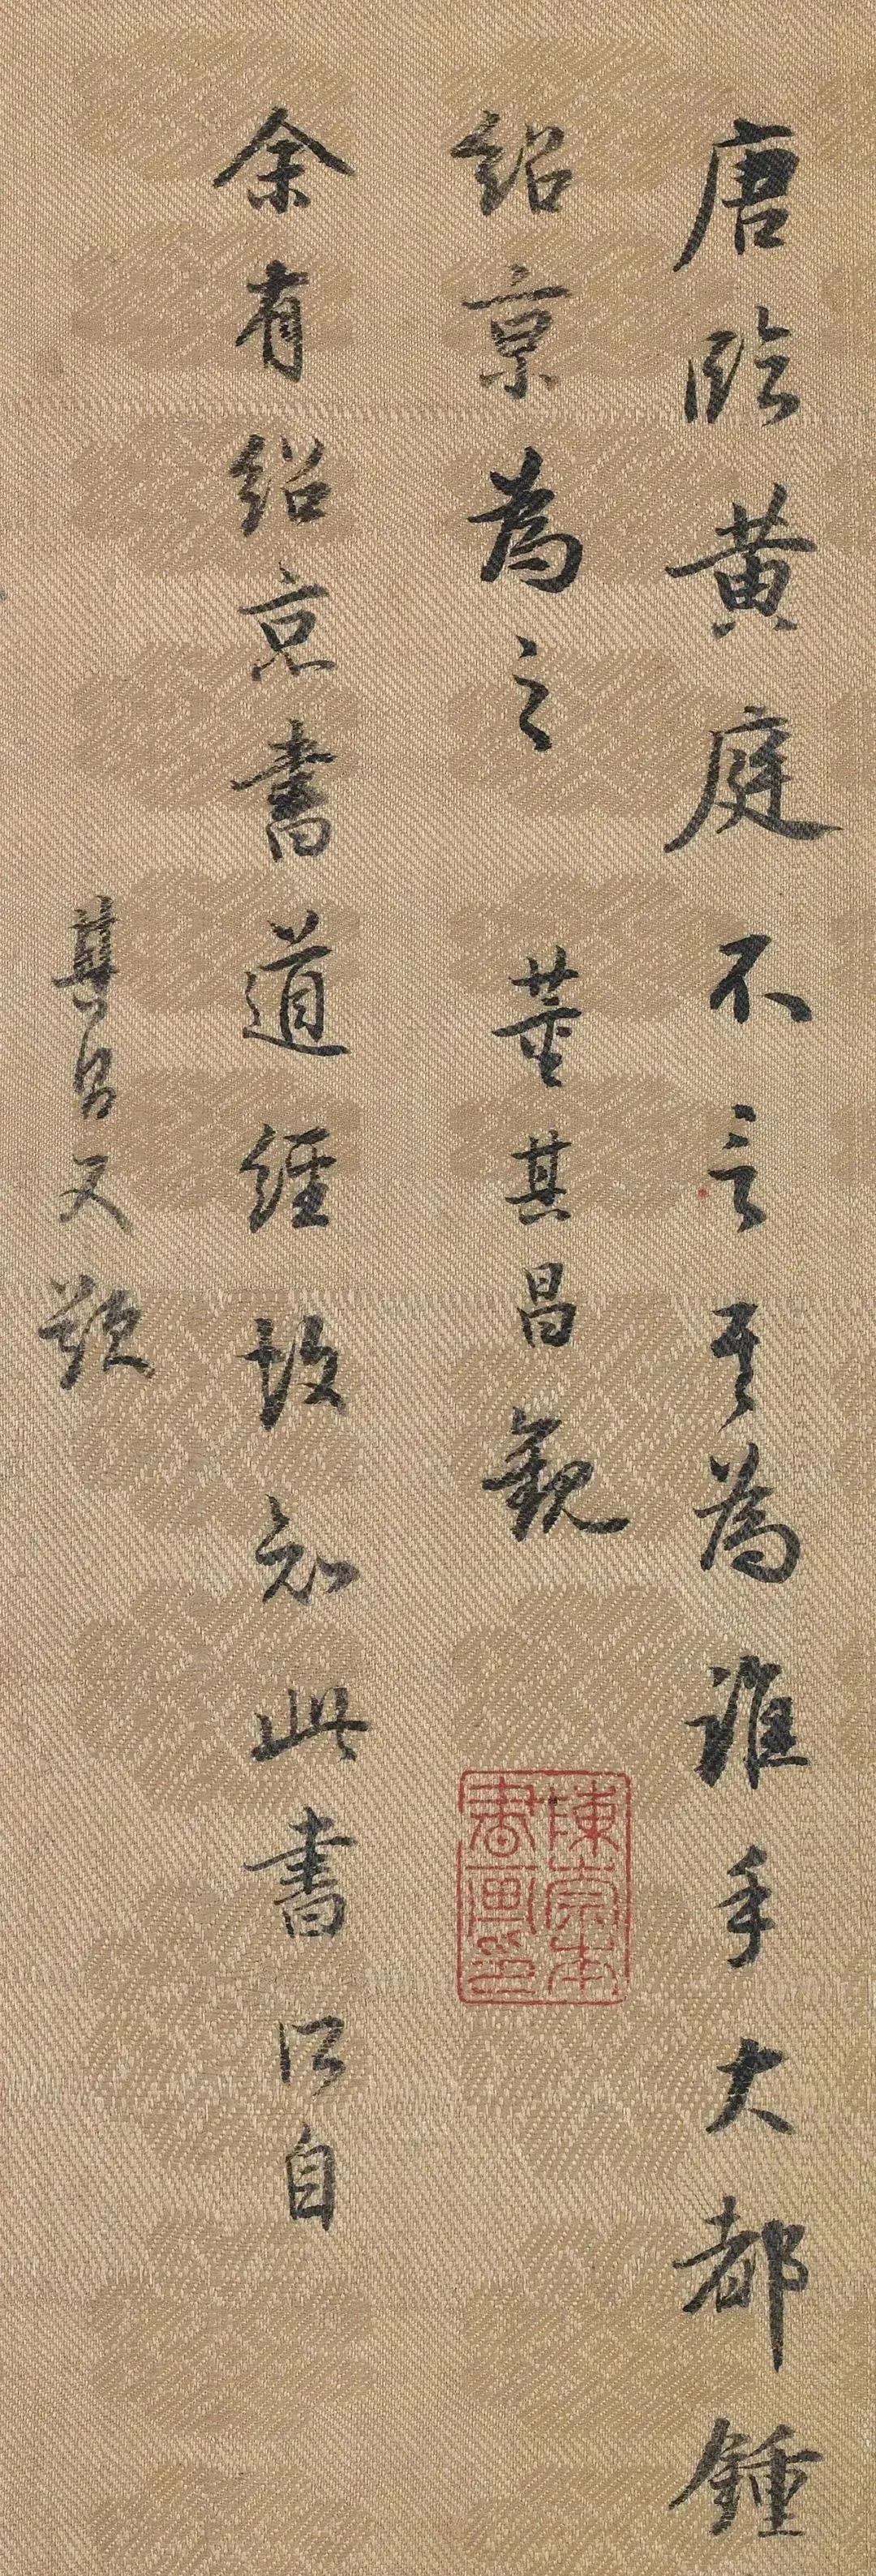 唐臨黃庭不言其為誰手大都鍾
紹京為之 董其昌觀
陳崇本
書画印
余有紹京書道經故知此書所自
其昌又題